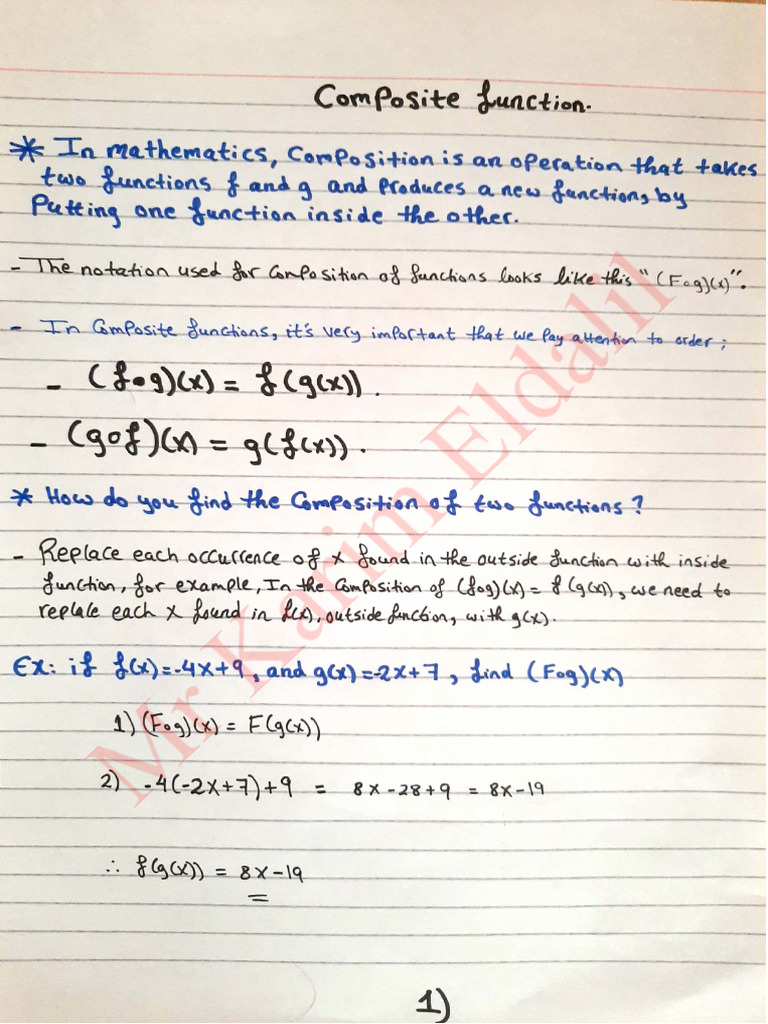 Composite function.
* In mathematics, Composition is an operation that takes
two functions f and g and Produces a new function, by
Putting one function inside the other.
- The notation used for Composition of functions looks like this "(Fog)(x)".
- In Composite functions, it's very important that we Pay attention to order;
- (fog)(x) = f(g(x)).
- (gof)(x) = g(f(x)).
* How do you find the Composition of two functions?
- Replace each occurrence of x found in the outside function with inside
function, for example, In the Composition of (fog)(x) = f(g(x)), we need to
replace each x found in f(x), outside function, with g(x).
Ex: if f(x) = -4x+9, and g(x) = -2x+7, find (Fog)(x)
1) (Fog)(x) = F(g(x))
2) -4(-2x+7)+9 = 8x-28+9 = 8x-19
∴ f(g(x)) = 8x-19
1)
Mr Karim Eldalil